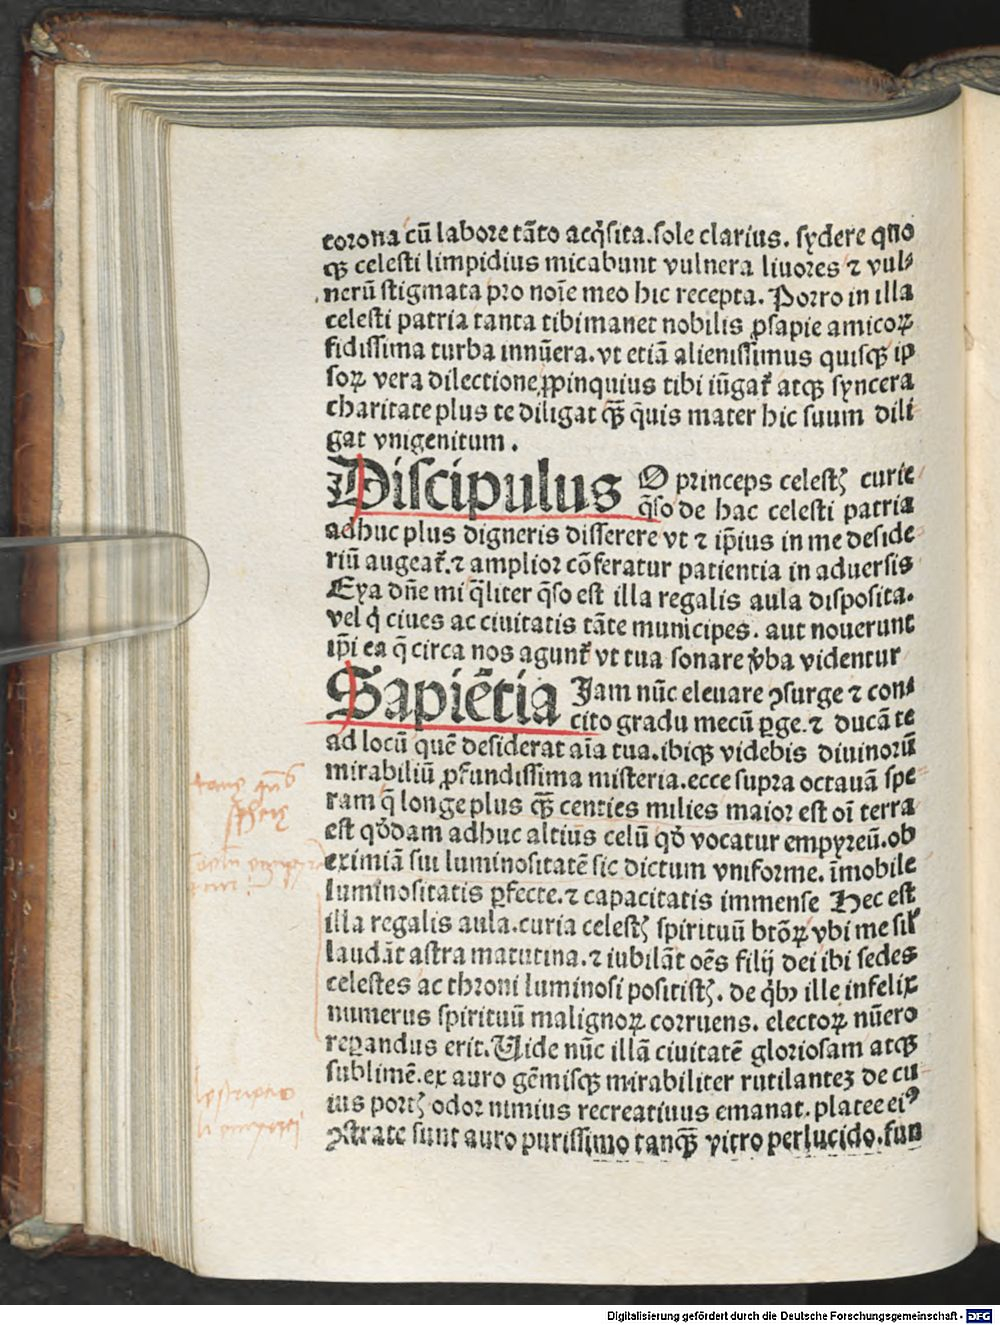 corona cū labore tāto acq̄sita. sole clarius. sydere quo
qꝫ celesti limpidius micabunt vulnera liuores ⁊ vul⸗
nerū stigmata pro noīe meo hic recepta. Porro in illa
celesti patria tanta tibi manet nobilis ꝓsapie amicoꝝ
fidissima turba innūera. vt etiā alienissimus quisqꝫ ip
soꝝ vera dilectione ꝓpinquius tibi iūgat᷑ atqꝫ syncera
charitate plus te diligat qꝫ̄ q̄uis mater hic suum dili
gat vnigenitum.
Discipulus O princeps celestꝭ curie
q̄so de hac celesti patria
adhuc plus digneris disserere vt ⁊ ip̄ius in me deside⸗
riū augeat᷑. ⁊ amplior cōferatur patientia in aduersis
Eya dn̄e mi q̄liter q̄so est illa regalis aula disposita.
vel q̇ ciues ac ciuitatis tāte municipes. aut nouerunt
ip̄i ea q̄ circa nos agunt᷑ vt tua sonare v̄ba videntur
Sapiētia Jam nūc eleuare ꝯsurge ⁊ con⸗
cito gradu mecū ꝑge. ⁊ ducā te
ad locū quē desiderat aīa tua. ibiqꝫ videbis diuinorū
mirabiliū ꝓfundissima misteria. ecce supra octauā spe⸗
ram q̄ longe plus qꝫ̄ centies milies maior est oī terra
est qōdam adhuc altius celū qō vocatur empyreū. ob
eximiā sui luminositatē sic dictum vniforme. īmobile
luminositatis ꝑfecte. ⁊ capacitatis immense Hec est
illa regalis aula. curia celestꝭ spirituū btōꝝ vbi me sil᷑
laudāt astra matutina. ⁊ iubilāt oēs filij dei ibi sedes
celestes ac throni luminosi positistꝭ. de q̇bꝰ ille infelix
numerus spirituū malignoꝝ corruens. electoꝝ nūero
reꝑandus erit. Uide nūc illā ciuitatē gloriosam atqꝫ
sublimē. ex auro gēmisqꝫ mirabiliter rutilantez de cu⸗
ius portꝭ odor nimius recreatiuus emanat. platee eiꝰ
ꝯstrate sunt auro purissimo tanqꝫ̄ vitro perlucido. fun
Digitalisierung gefördert durch die Deutsche Forschungsgemeinschaft - DFG